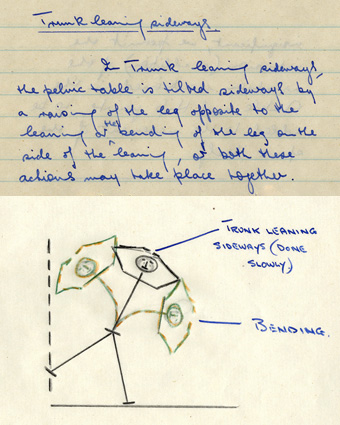 Trunk leaning sideways.
In Trunk leaning sideways,
the pelvic table is tilted sideways by
a raising of the leg opposite to the
leaning, the bending of the leg on the
side of the leaning, or both these
actions may take place together.
TRUNK LEANING
SIDEWAYS (DONE
SLOWLY.)
BENDING.